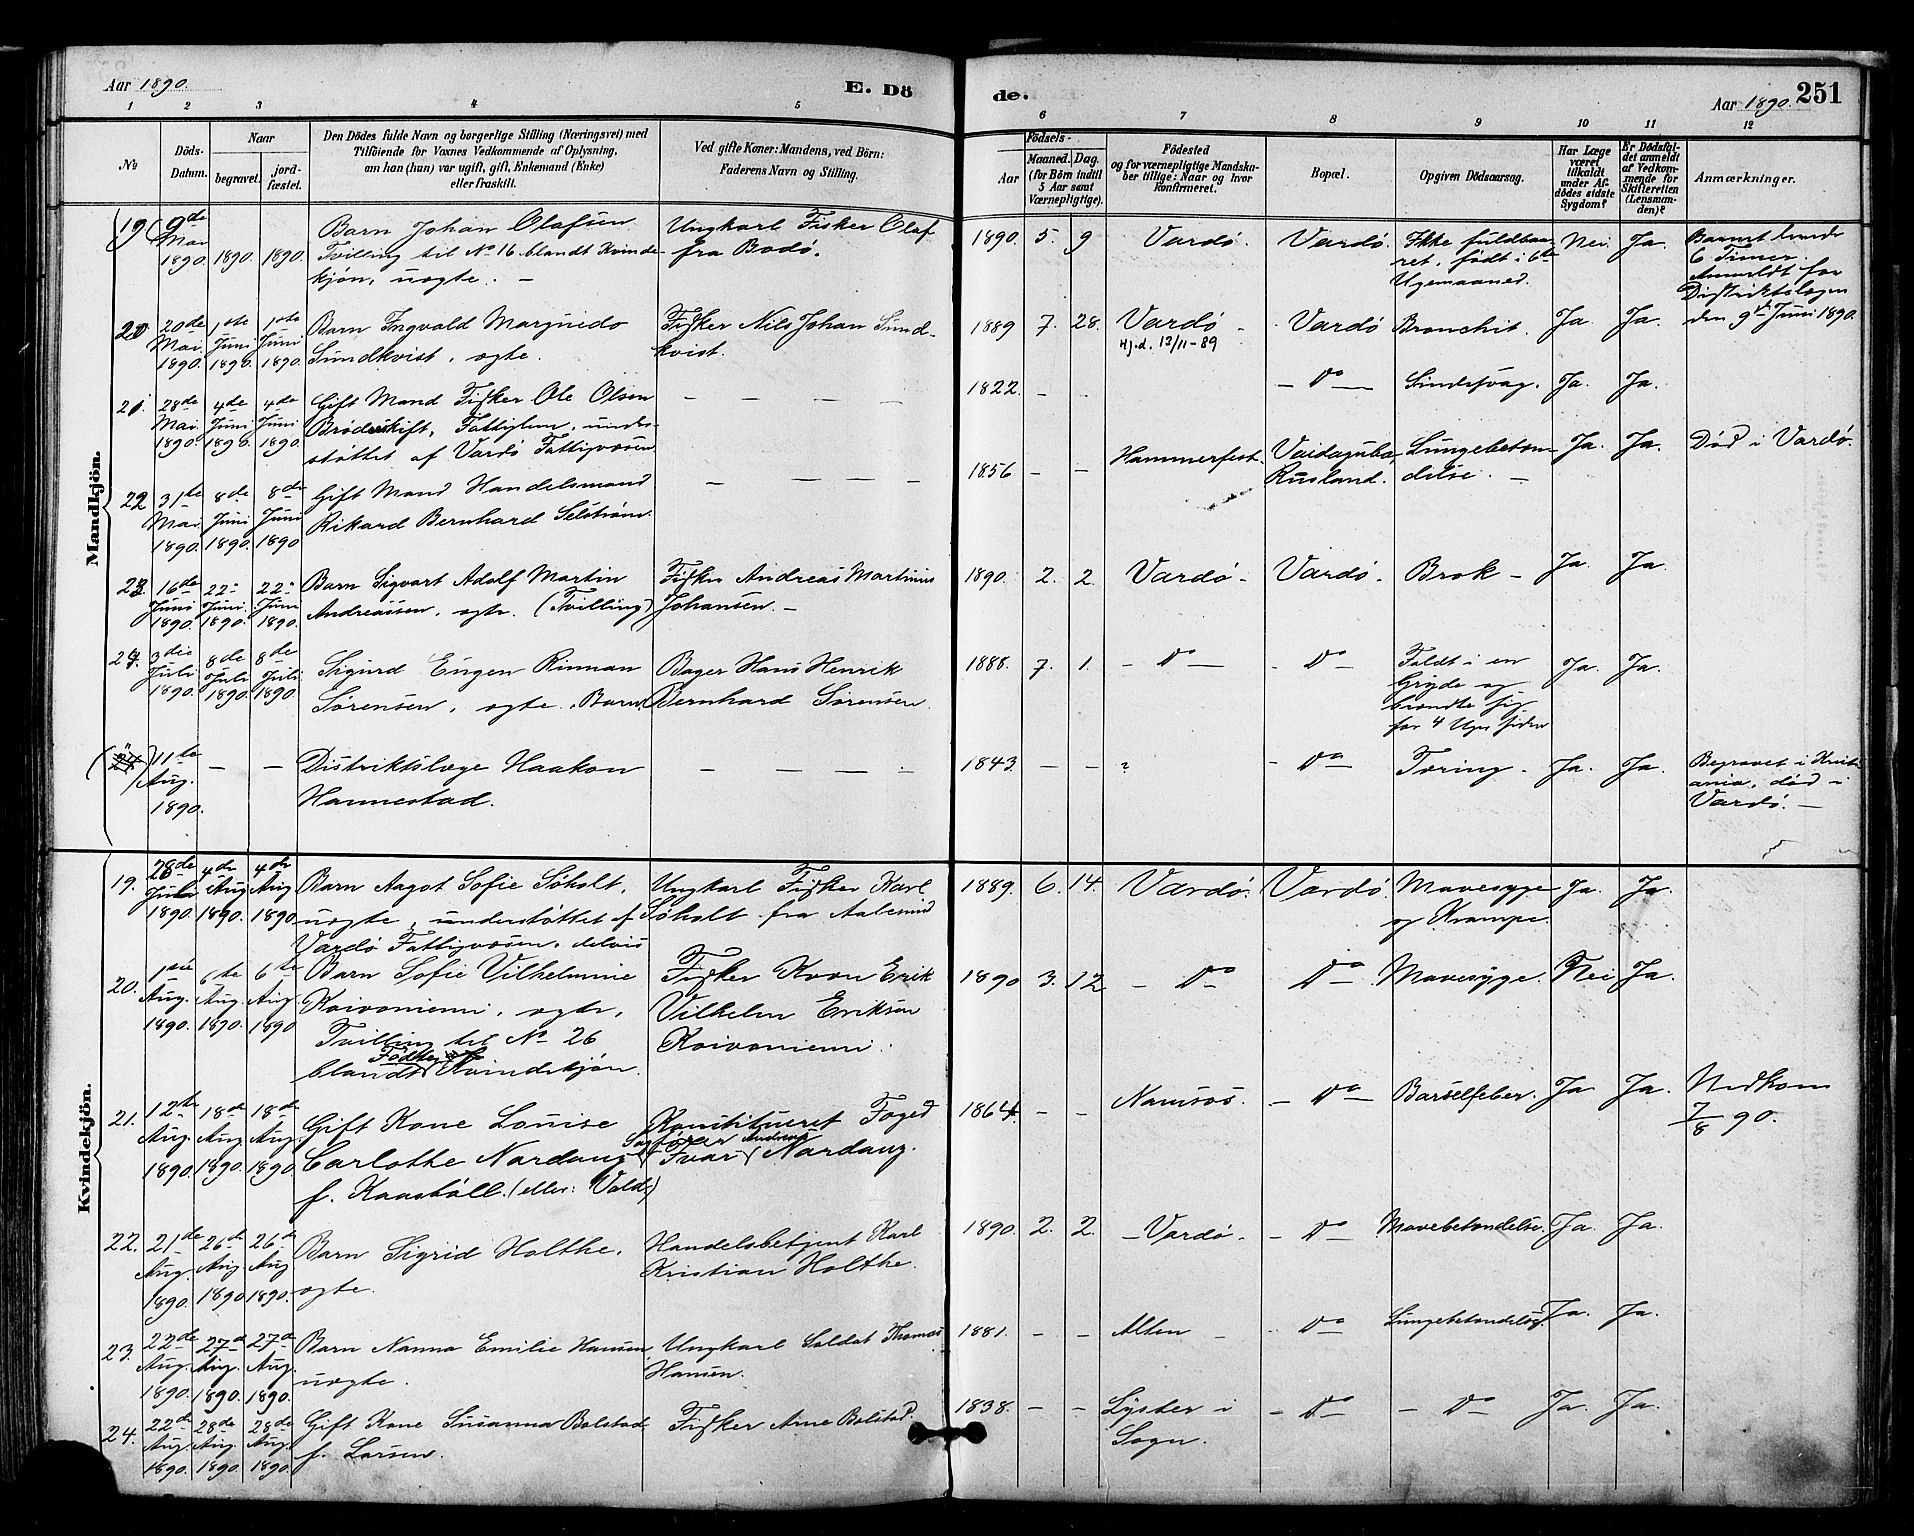 Aar 1890.
E. Dö
de.
Aar 1890.
251
1 2 3 4 5 6 7 8 9 10 11 12
No
Döds-
Datum.
Naar
begravet.
jord-
fæstet.
Den Dödes fulde Navn og borgerlige Stilling (Næringsvei) med
Tilföiende for Voxnes Vedkommende af Oplysning,
om han (hun) var ugift, gift, Enkemand (Enke)
eller fraskilt.
Ved gifte Koner: Mandens, ved Börn:
Faderens Navn og Stilling.
Födsels-
Aar
Maaned.
Dag.
(for Börn indtil
5 Aar samt
Værnepligtige).
Födested
og for værnepligtige Mandska-
ber tillige: Naar og hvor
Konfirmeret.
Bopæl.
Opgiven Dödsaarsag.
Har Læge
været
tilkaldt
under Af-
dödes sidste
Sygdom?
Er Dödsfal-
det anmeldt
af Vedkom-
mende for
Skifteretten
(Lensman-
den)?
Anmærkninger.
Mandkjön.
(19) 9de Mai 1890. 1890. 1890.
Barn Johan Olafsen
Tvilling til No 16 blandt Kvinde-
kjøn, uægte. -
Ungkarl Fisker Olaf
fra Bodø.
1890. 5. 9 Vardø. Vardø.
Ikke fuldbaa-
ret, født i 6te
Ugemaaned.
Nei. Ja.
Barnet levede
6 Timer.
Anmeldt for
Distriktslægen
den 9de Juni 1890.
20 20de Mai 1890. 1ste Juni 1890. 1ste Juni 1890.
Barn Ingvald Margnido
Sundkvist, ægte.
Fisker Nils Johan Sund-
kvist.
1889 7. 28. Vardø - Vardø Bronchit. Ja. Ja.
Hj.d. 12/11-89
21. 28de Mai 1890. 4de Juni 1890. 4de Juni 1890.
Gift Mand Fisker Ole Olsen
Broderskift, Fattiglem, under-
støttet af Vardø Fattigvæsen
1822. - - - Do - Sindssvag. Ja. Ja.
22 31te Mai 1890. 8de Juni 1890. 8de Juni 1890
Gift Mand Handelsmand
Rikard Bernhard Selstrøm.
1856 - - Hammerfest. Vaidaguba,
Rusland.
Lungebeten-
delse. -
Ja. Ja. Død i Vardø.
23. 16de Juni 1890. 22- Juni. 1890. 22- Juni 1890.
Barn Sigvart Adolf Martin
Andreassen, ægte. (Tvilling)
Fisker Andreas Martinus
Johansen. -
1890. 2. 2 Vardø - Vardø. Brok - Ja. Ja.
24. 3die Juli 1890. 8de Juli 1890. 8de Juli 1890.
Sigurd Eugen Rinman
Sørensen, ægte. Barn.
Bager Hans Henrik
Bernhard Sørensen.
1888. 7. 1. - Do - - Do -
Faldt i en
Gryde og
brændte sig
for 4 Uger siden
Ja. Ja.
(24) 11te Aug. 1890. - -
Distriktslæge Haakon
Hannestad.
1843. - - ? - Do Tæring - Ja. Ja.
Begravet i Kristi-
ania, død i
Vardø. -
Kvindekjön.
19. 28de Juli 1890. 4de Aug 1890. 4de Aug. 1890.
Barn Aagot Sofie Søholt,
uægte, understøttet af
Vardø Fattigvæsen, delvis
Ungkarl Fisker Karl
Søholt fra Aalesund
1889. 6. 14. Vardø. Vardø.
Mavesyge
og Krampe.
Ja. Ja.
20. 1ste Aug. 1890. 6te Aug. 1890. 6te Aug. 1890
Barn Sofie Vilhelmine
Koivoniemi, ægte,
Tvilling til No 26
blandt Fødte af Kvindekjøn.
Fisker Kvæn Erik
Vilhelm Eriksen
Koivoniemi.
1890 3. 12 - Do Do - Mavesyge. Nei Ja.
21. 12te Aug. 1890. 18de Aug. 1890. 18de Aug. 1890
Gift Kone Louise
Carlothe Nordaug
f. Kaasbøll. (eller: Vold)
Konstitueret Foged
Sagfører Ivar Andreas Nordaug.
1864. - - Namsos. - Do - Barselfeber. Ja. Ja.
Nedkom
7/8 90.
22. 21de Aug. 1890. 26de Aug 1890 26de Aug 1890.
Barn Sigrid Holthe,
ægte.
Handelsbetjent Karl
Kristian Holthe.
1890. 2. 2. - Vardø. - Do - Mavebetændelse. Ja. Ja.
23. 22de Aug. 1890. 27de Aug. 1890. 27de Aug. 1890.
Barn Nanna Emilie Hansen
uægte.
Ungkarl Soldat Thomas
Hansen.
1881. - - Alten - - Do Lungebetændelse. Ja. Ja.
24. 22de Aug. 1890. 28de Aug. 1890. 28de Aug. 1890.
Gift Kone Susanna Bolstad
f. Larsen.
Fisker Arne Bolstad.
1838. - - Lyster i
Sogn.
- Do - - Do Ja. Ja.